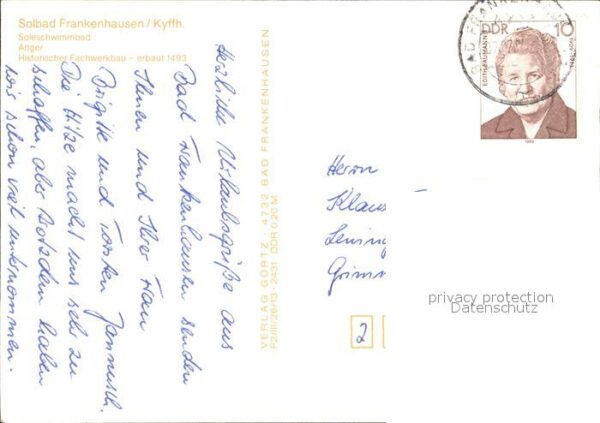 Solbad Frankenhausen / Kyffh.
Soleschwimmbad
Anger
Historischer Fachwerkbau – erbaut 1493
Herzliche Urlaubsgrüße aus
Bad Frankenhausen senden
Ihnen und Ihrer Frau
Brigitte und Torsten Jannusch.
Die Hitze macht uns sehr zu
schaffen, aber trotzdem haben
wir schon viel unternommen.
VERLAG GÖRTZ · 4732 BAD FRANKENHAUSEN
P2/III/26/13 · 2431 DDR 0,20 M
BAD FRANKEN
DDR
10
EDITH BAUMANN
1989
Herrn
Klaus
Lening
Grimm
2
privacy protection
Datenschutz